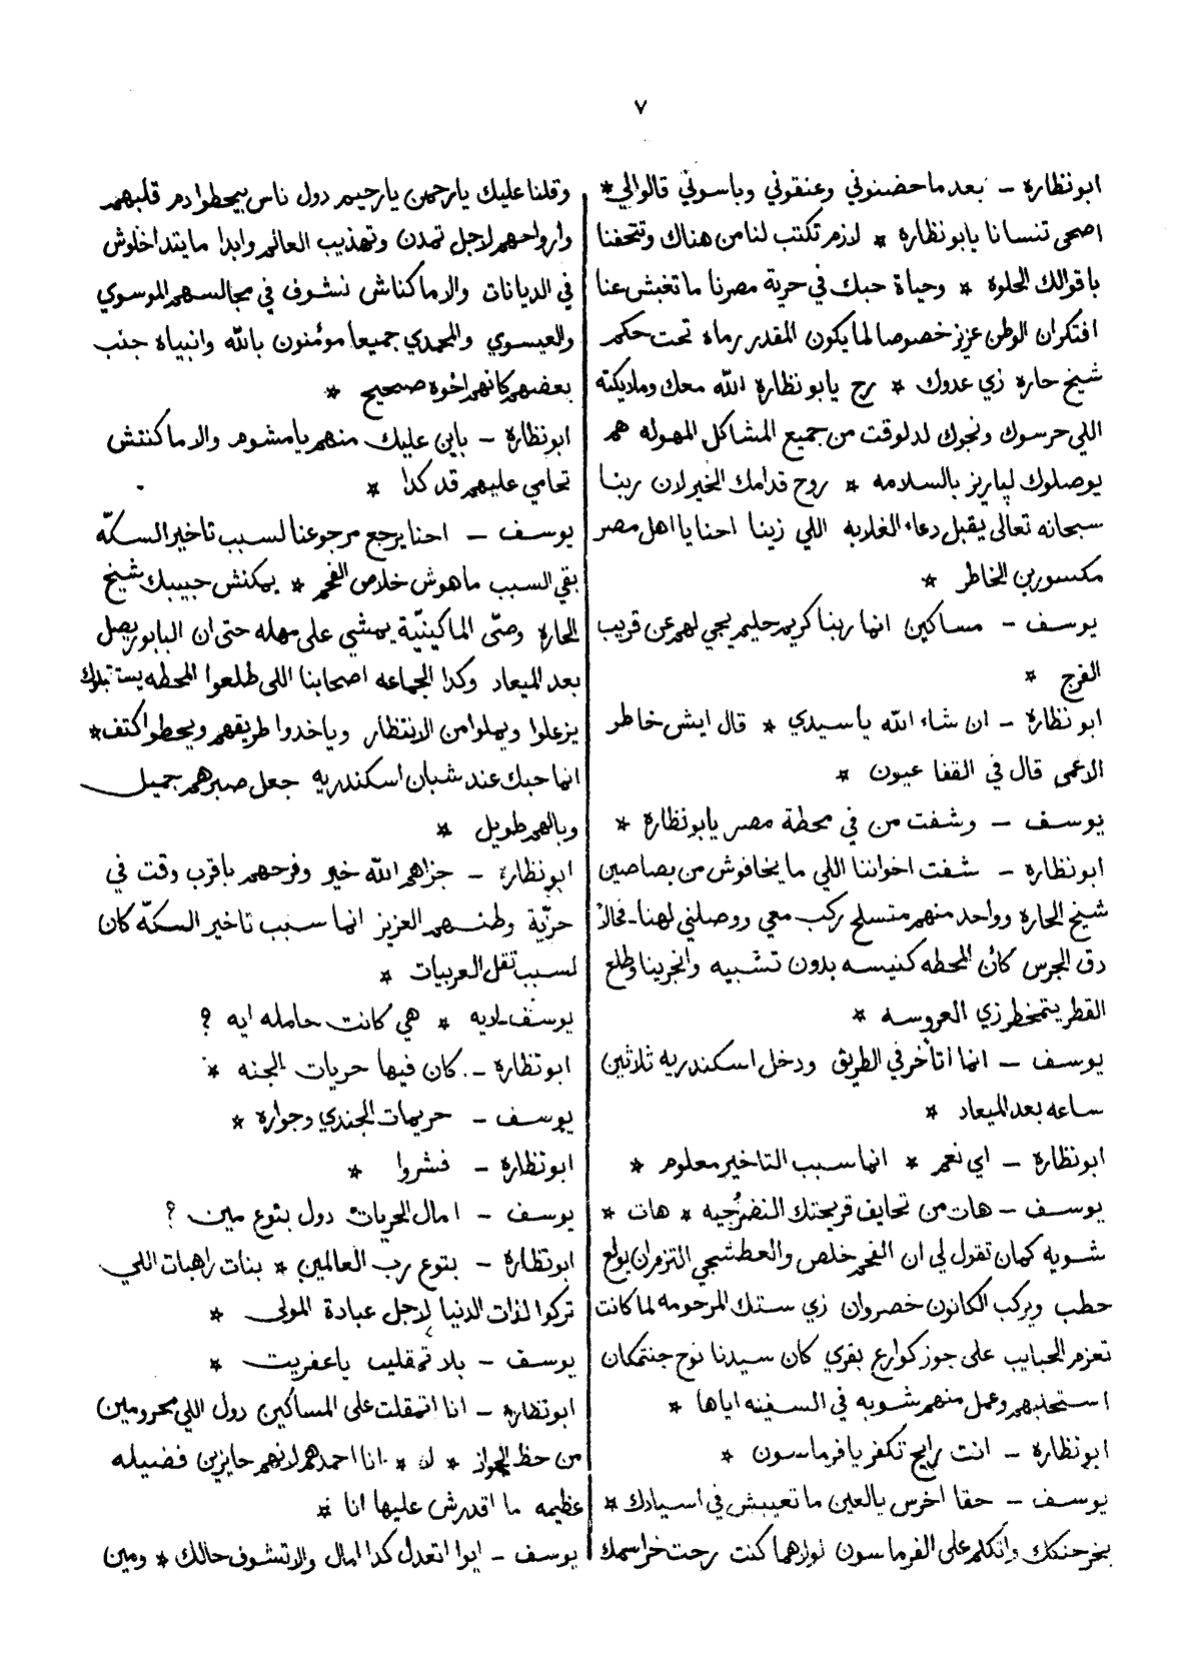 ٧
ابونظارة — بعد ماحضنوني وعنقوني وباسوني قالوالي *
اصحى تنسانا يابونظاره * لازم تكتب لنا من هناك وتتحفنا
باقوالك الحلوة * وحياة حبك في حرية مصرنا ما تغبش عنا
افتكران الوطن عزيز خصوصا لما يكون المقدر رماه تحت حكم
شيخ حاره زي عدوك * رح يابونظاره الله معك وملايكته
اللي حرسوك ونجوك لدلوقت من جميع المشاكل المهوله هم
يوصلوك لپاريز بالسلامه * روح قدامك الخير لان ربنا
سبحانه تعالى يقبل دعاء الغلابه اللي زينا احنا يا اهل مصر
مكسورين الخاطر *
يوسف — مساكين انما ربنا كريم حليم يجي لهم عن قريب
الفرج *
ابونظارة — ان شاء الله ياسيدي * قال ايش خاطر
الاعمى قال في القفا عيون *
يوسف — وشفت من في محطة مصر يابونظارة *
ابونظارة — شفت اخواننا اللي ما يخافوش من بصاصين
شيخ الحاره وواحد منهم متسلح ركب معي ووصلني لهنا — فحالاً
دق الجرس كأن المحطه كنيسه بدون تشبيه وانجرينا وطلع
القطر يتمخطر زي العروسه *
يوسف — انما اتأخر في الطريق ودخل اسكندريه ثلاثين
ساعه بعد الميعاد *
ابونظارة — اي نعم * انما سبب التاخير معلوم *
يوسف — هات من تحايف قريحتك النضرجيه * هات *
شويه كمان تقول لي ان الفحم خلص والعطشجي التزم ان يولع
حطب ويركب الكانون خصروان زي ستك المرحومه لما كانت
تعزم الحبايب على جوز كوارع بقري كان سيدنا نوح جنتمكان
استحلبهم وعمل منهم شوبه في السفينه اياها *
ابونظارة — انت رايح تكفر يافرماسون *
يوسف — حقا اخرس يالعين ما تعيبش في اسيادك *
بخر حنكك واتكلم على الفرماسون لولاهما كنت رحت خراسمك
وقلنا عليك يارحمن يارحيم دول ناس بيحطوا دم قلبهم
وارواحهم لاجل تمدن وتهذيب العالم وابدا ما يتداخلوش
في الديانات والا ما كناش نشوف في مجالسهم الموسوي
والعيسوي والمحمدي جميعا مؤمنون بالله وانبياه جنب
بعضهم كانهم اخوه صحيح *
ابونظارة — باين عليك منهم يامشوم والا ما كنتش
تحامي عليهم قد كدا *
يوسف — احنا يرجع مرجوعنا لسبب تاخير السكّه
بقي السبب ماهوش خلاص الفحم * يمكنش حبيبك شيخ
الحاره وصّى الماكينيّة يمشي على مهله حتى ان البابور يصل
بعد الميعاد وكدا الجماعه اصحابنا اللى طلعوا المحطه يستقبلوك
يزعلوا ويملوا من الانتظار وياخدوا طريقهم ويحطوا كتف *
انما حبك عند شبان اسكندريه جعل صبرهم جميل
وبالهم طويل *
ابونظارة — جزاهم الله خير وفرحهم باقرب وقت في
حرّية وطنهم العزيز انما سبب تاخير السكّه كان
لسبب تقل العربيات *
يوسف — لايه * هي كانت حامله ايه ?
ابونظارة — كان فيها حريات الجنه *
يوسف — حريمات الجندي وجواره *
ابونظارة — فشروا *
يوسف — امال الحريات دول بتوع مين ?
ابونظارة — بتوع رب العالمين * بنات راهبات اللي
تركوا لذات الدنيا لاجل عبادة المولى *
يوسف — بلا تمقليب ياعفريت *
ابونظارة — انا اتمقلت على المساكين دول اللي محرومين
من حظ الجواز * لا * انا احمدهم لانهم حايزين فضيله
عظيمه ما اقدرش عليها انا *
يوسف — ايوا اتعدل كدا امال والا تشوف حالك * ومين